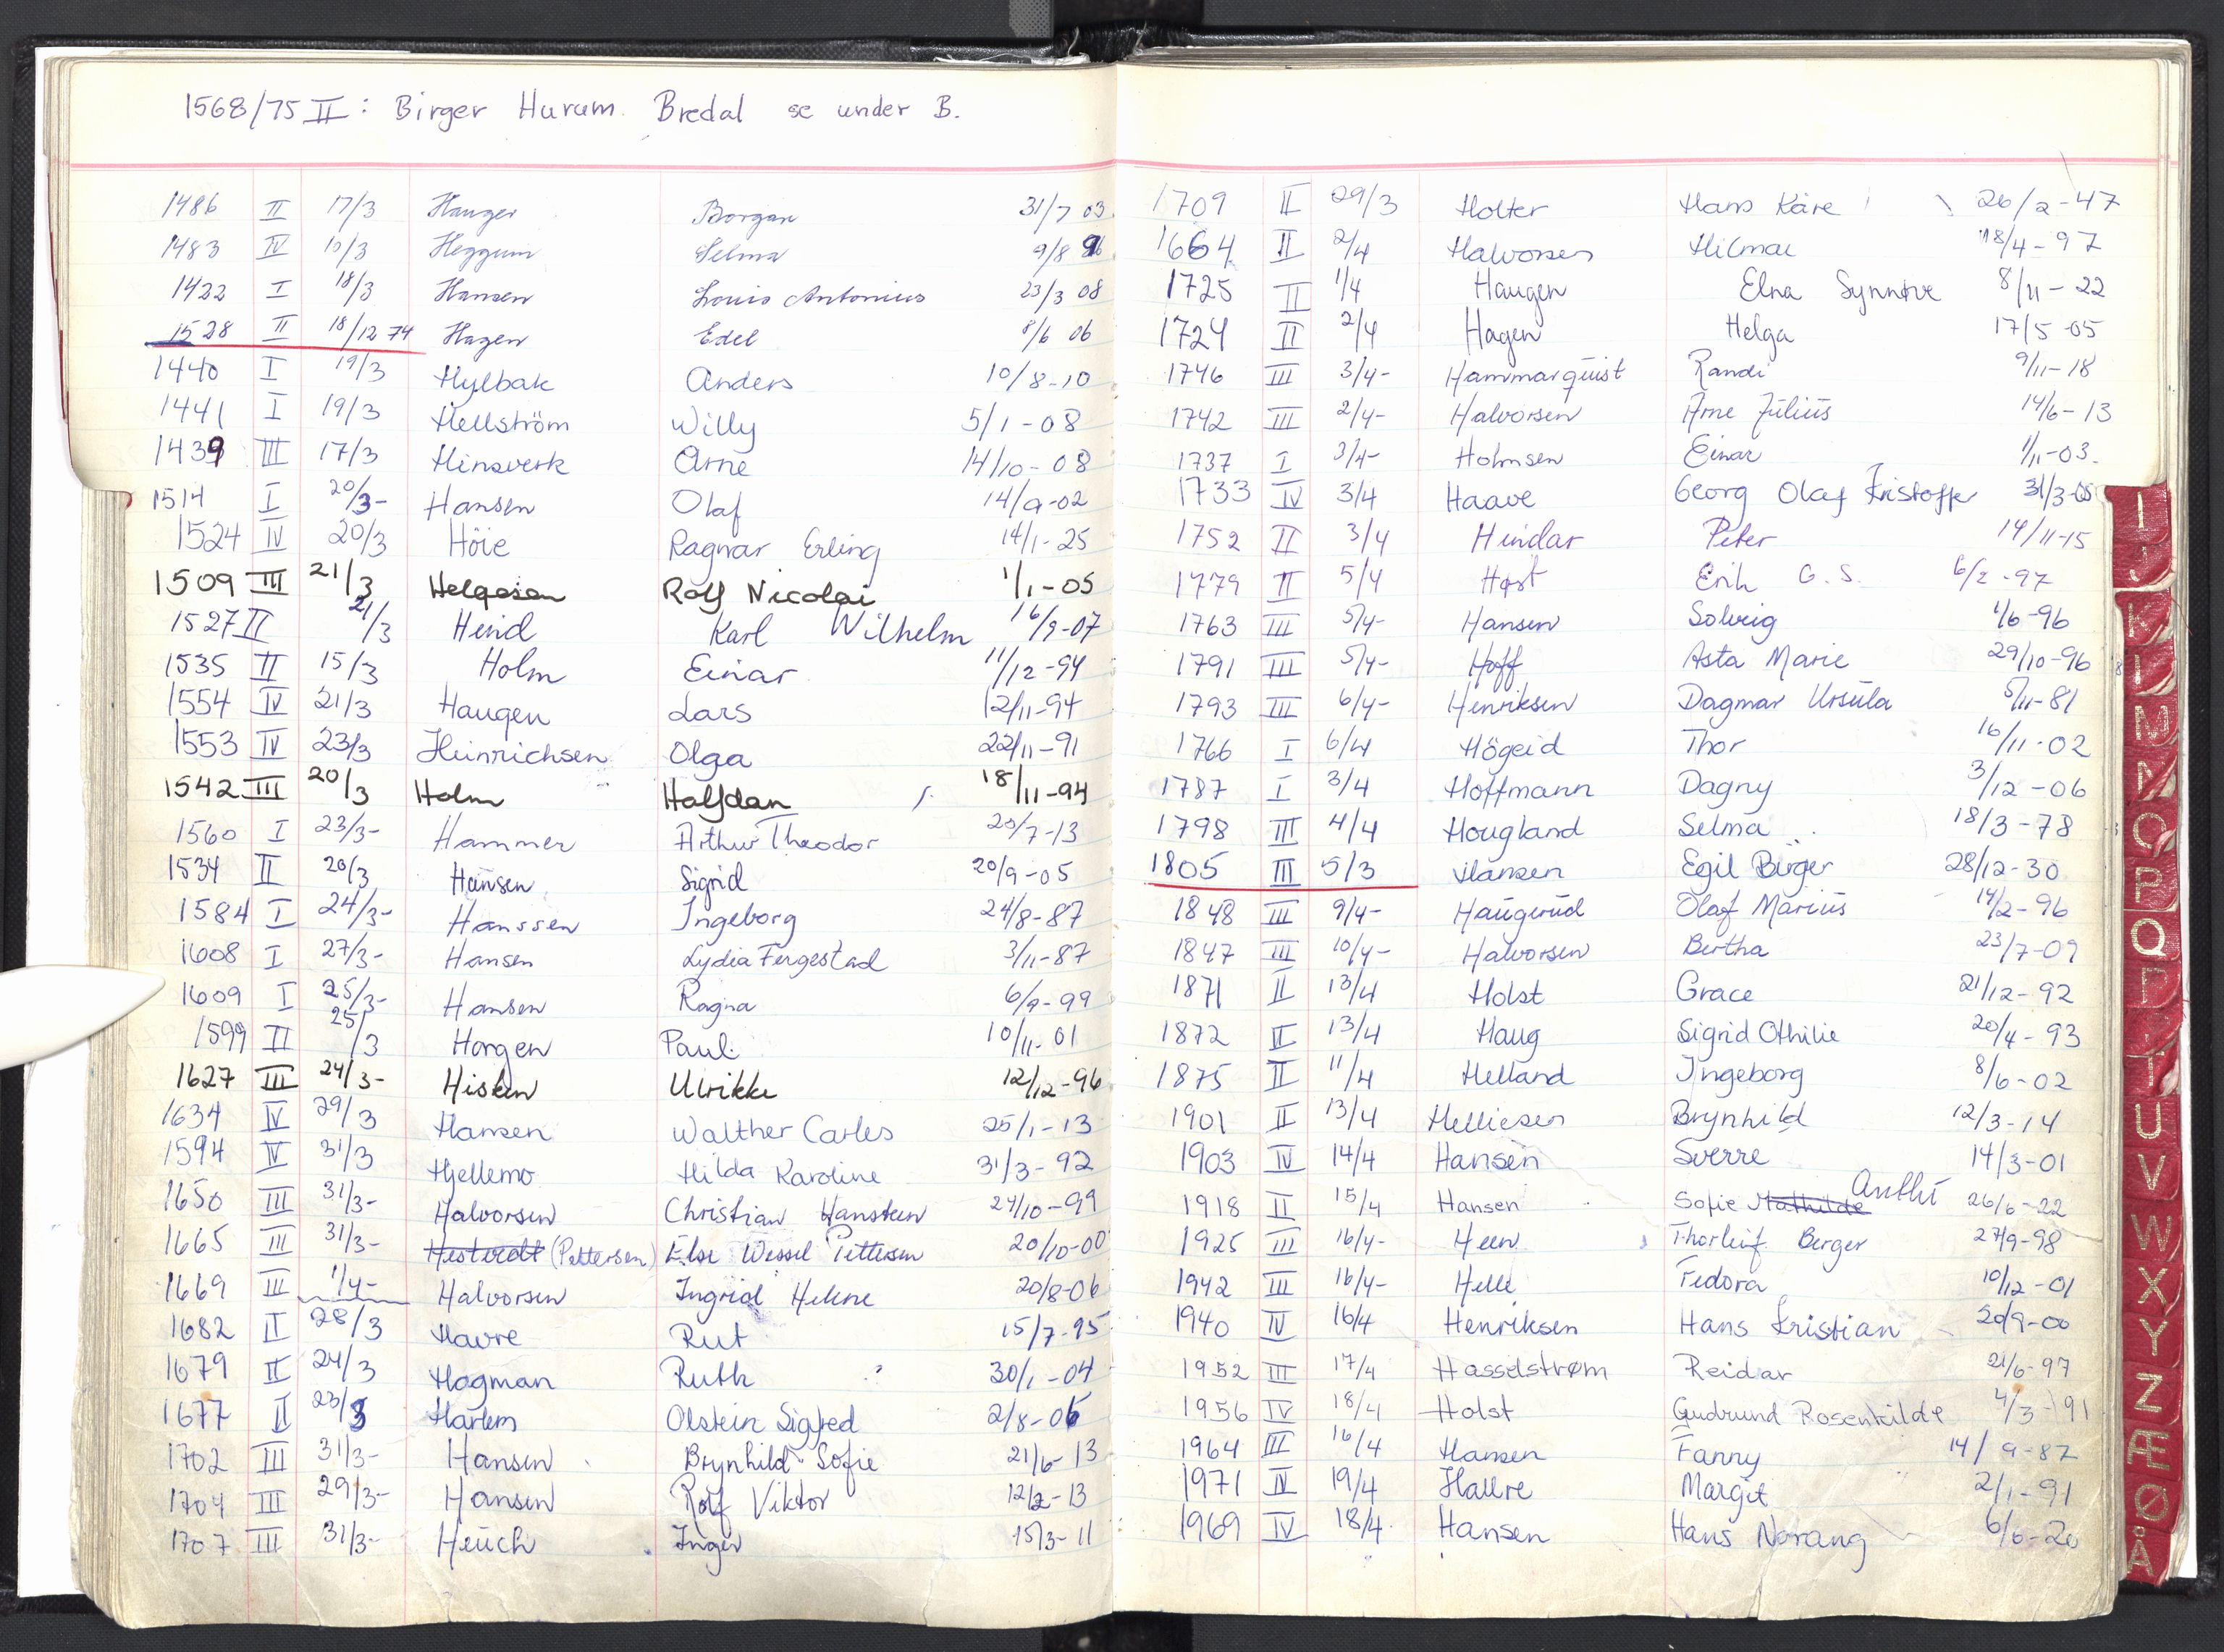 1568/75 II: Birger Hurum Bredal se under B.
1486 II 17/3 Hauger Borgar 31/7 03
1483 IV 10/3 Heggum Selma 9/8 96
1422 I 18/3 Hansen Louis Antonius 23/3 08
1528 II 18/12 74 Hagen Edel 8/6 06
1440 I 19/3 Hylbak Anders 10/8-10
1441 I 19/3 Hellström Willy 5/1-08
1439 III 17/3 Hinsverk Arne 14/10-08
1514 I 20/3- Hansen Olaf 14/9-02
1524 IV 20/3 Höie Ragnar Erling 14/1-25
1509 III 21/3 Helgesen Rolf Nicolai 1/1-05
1527 II 21/3 Heid Karl Wilhelm 16/9-07
1535 II 15/3 Holm Einar 11/12-94
1554 IV 21/3 Haugen Lars 12/11-94
1553 IV 23/3 Heinrichsen Olga 22/11-91
1542 III 20/3 Holm Halfdan 18/11-94
1560 I 23/3- Hammer Arthur Theodor 20/7-13
1534 II 20/3 Hansen Sigrid 20/9-05
1584 I 24/3- Hanssen Ingeborg 24/8-87
1608 I 27/3- Hansen Lydia Fergestad 3/11-87
1609 I 25/3- Hansen Ragna 6/9-99
1599 II 25/3 Horgen Paul 10/11-01
1627 III 24/3- Hisken Ulrikke 12/12-96
1634 IV 29/3 Hansen Walther Carles 25/1-13
1594 IV 31/3 Hjellemo Hilda Karoline 31/3-92
1650 III 31/3- Halvorsen Christian Hansteen 24/10-99
1665 III 31/3- Hestvedt (Pettersen) Else Wessel Pettersen 20/10-00
1669 III 1/4- Halvorsen Ingrid Helene 20/8-06
1682 II 28/3 Havre Rut 15/7-95
1679 II 24/3 Hagman Ruth 30/1-04
1677 II 23/3 Harlem Olstein Sigfred 2/8-06
1702 III 31/3- Hansen Brynhild Sofie 21/6-13
1704 III 29/3- Hansen Rolf Viktor 12/2-13
1707 III 31/3- Heuch Inger 15/3-11
1709 II 29/3 Holter Hans Kåre 26/2-47
1664 II 2/4 Halvorsen Hilmar 18/4-97
1725 II 1/4 Haugen Elna Synnøve 8/11-22
1724 II 2/4 Hagen Helga 17/5-05
1746 III 3/4- Hammarquist Randi 9/11-18
1742 III 2/4- Halvorsen Arne Julius 14/6-13
1737 I 3/4- Holmsen Einar 1/11-03.
1733 IV 3/4 Haave Georg Olaf Kristoffe 31/3-05
1752 II 3/4 Hindar Peter 14/11-15
1779 II 5/4 Høst Erik G.S. 6/2-97
1763 III 5/4- Hansen Solveig 1/6-96
1791 III 5/4- Hoff Asta Marie 29/10-96
1793 III 6/4- Henriksen Dagmar Ursula 5/11-81
1766 I 6/4 Högeid Thor 16/11-02
1787 I 3/4 Hoffmann Dagny 3/12-06
1798 III 4/4 Hougland Selma 18/3-78
1805 III 5/3 Hansen Egil Birger 28/12-30
1848 III 9/4- Haugerud Olaf Marius 14/2-96
1847 III 10/4- Halvorsen Bertha 23/7-09
1871 II 13/4 Holst Grace 21/12-92
1872 II 13/4 Haug Sigrid Othilie 20/4-93
1875 II 11/4 Helland Ingeborg 8/6-02
1901 II 13/4 Helliesen Brynhild 12/3-14
1903 IV 14/4 Hansen Sverre 14/3-01
1918 II 15/4 Hansen Sofie Mathilde Anthi 26/6-22
1925 III 16/4- Heen Thorleif Berger 27/9-98
1942 III 16/4- Helle Fedora 10/12-01
1940 IV 16/4 Henriksen Hans Kristian 20/9-00
1952 III 17/4 Hasselstrøm Reidar 21/6-97
1956 IV 18/4 Holst Gudrund Rosenkilde 4/3-91
1964 III 16/4 Hansen Fanny 14/9-87
1971 IV 19/4 Hallre Margit 2/1-91
1969 IV 18/4 Hansen Hans Norang 6/6-20
I
J
K
L
M
N
O
P
Q
R
T
U
V
W
X
Y
Z
Æ
Ø
Å